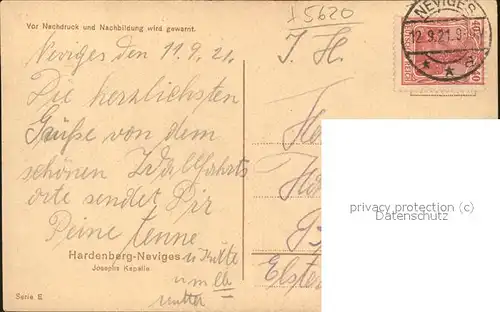 Vor Nachdruck und Nachbildung wird gewarnt.
Neviges den 11.9.21.
Die herzlichsten
Grüße von dem
schönen Wallfahrts
orte sendet Dir
Deine
Hardenberg-Neviges
Josephs Kapelle
Serie E
5620
J. H.
NEVIGES
12.9.21.9
privacy protection (c)
Datenschutz
Elster